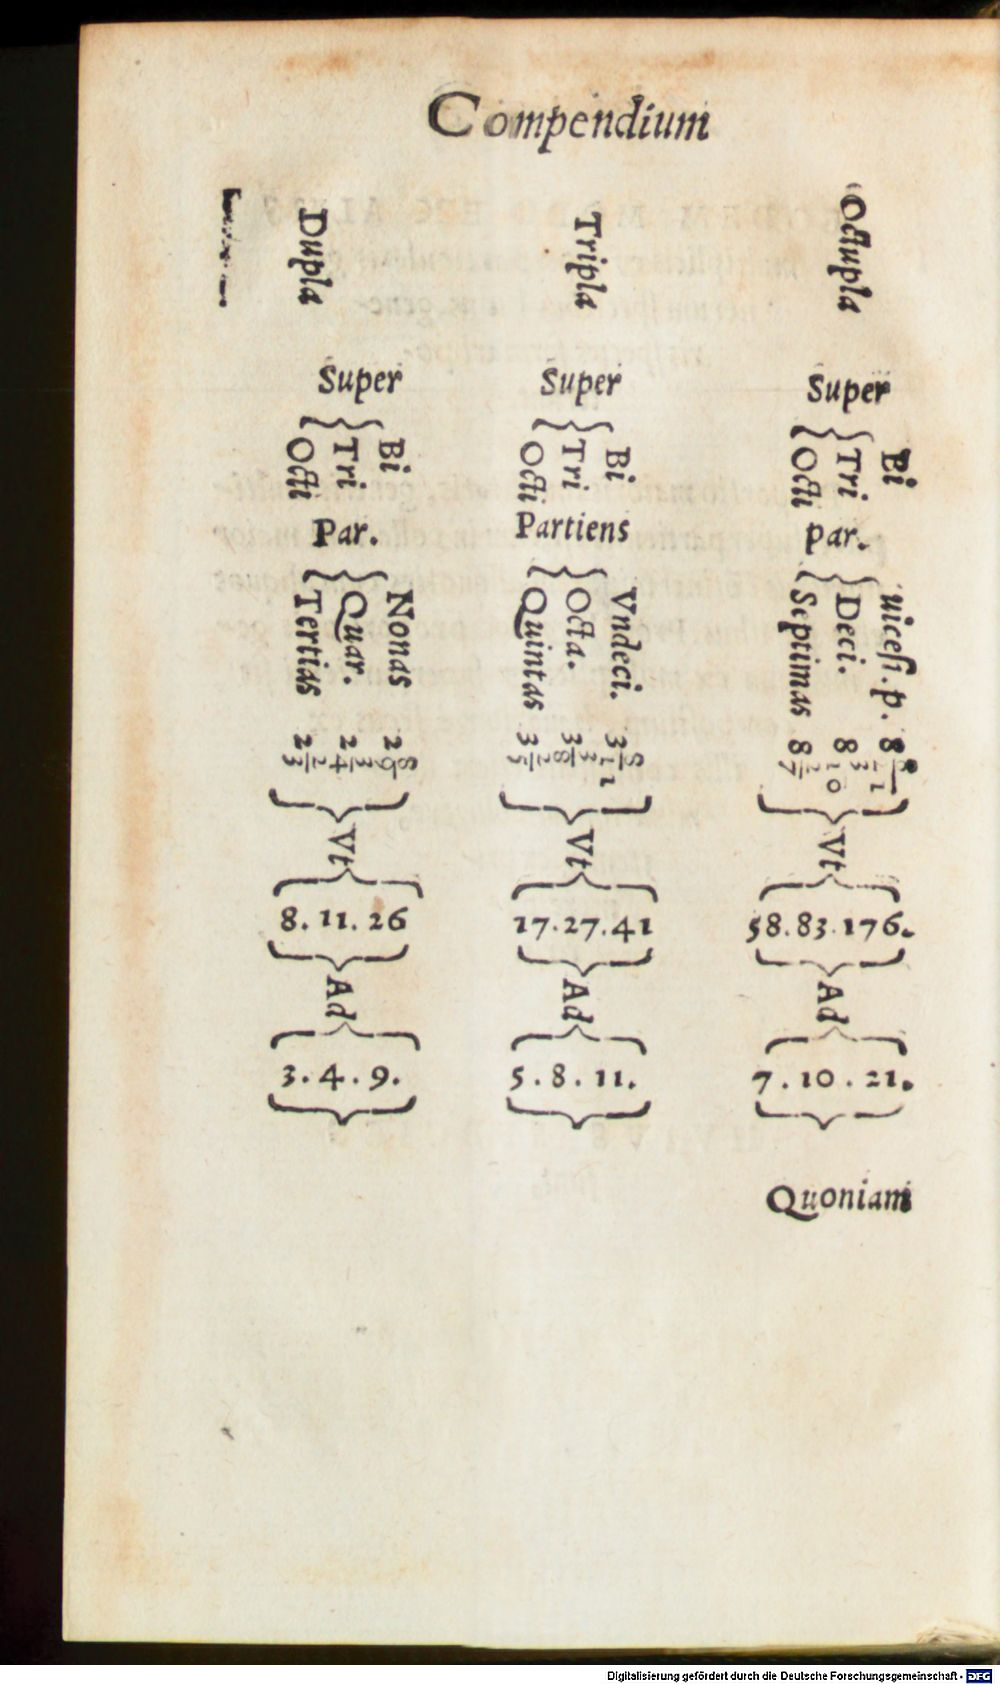 Compendium
Dupla Tripla Octupla
Super Super Super
Bi Bi Bi
Tri Tri Tri
Octi Octi Octi
Par. Partiens Par.
Nonas Vndeci. uicesi. p.
Quar. Octa. Deci.
Tertias Quintas Septimas
2 8/9 3 8/11 8 8/21
2 3/4 3 3/8 8 3/10
2 2/3 3 2/5 8 2/7
Vt Vt Vt
8. 11. 26 17. 27. 41 58. 83. 176.
Ad Ad Ad
3. 4. 9. 5. 8. 11. 7. 10. 21.
Quoniam
Digitalisierung gefördert durch die Deutsche Forschungsgemeinschaft - DFG